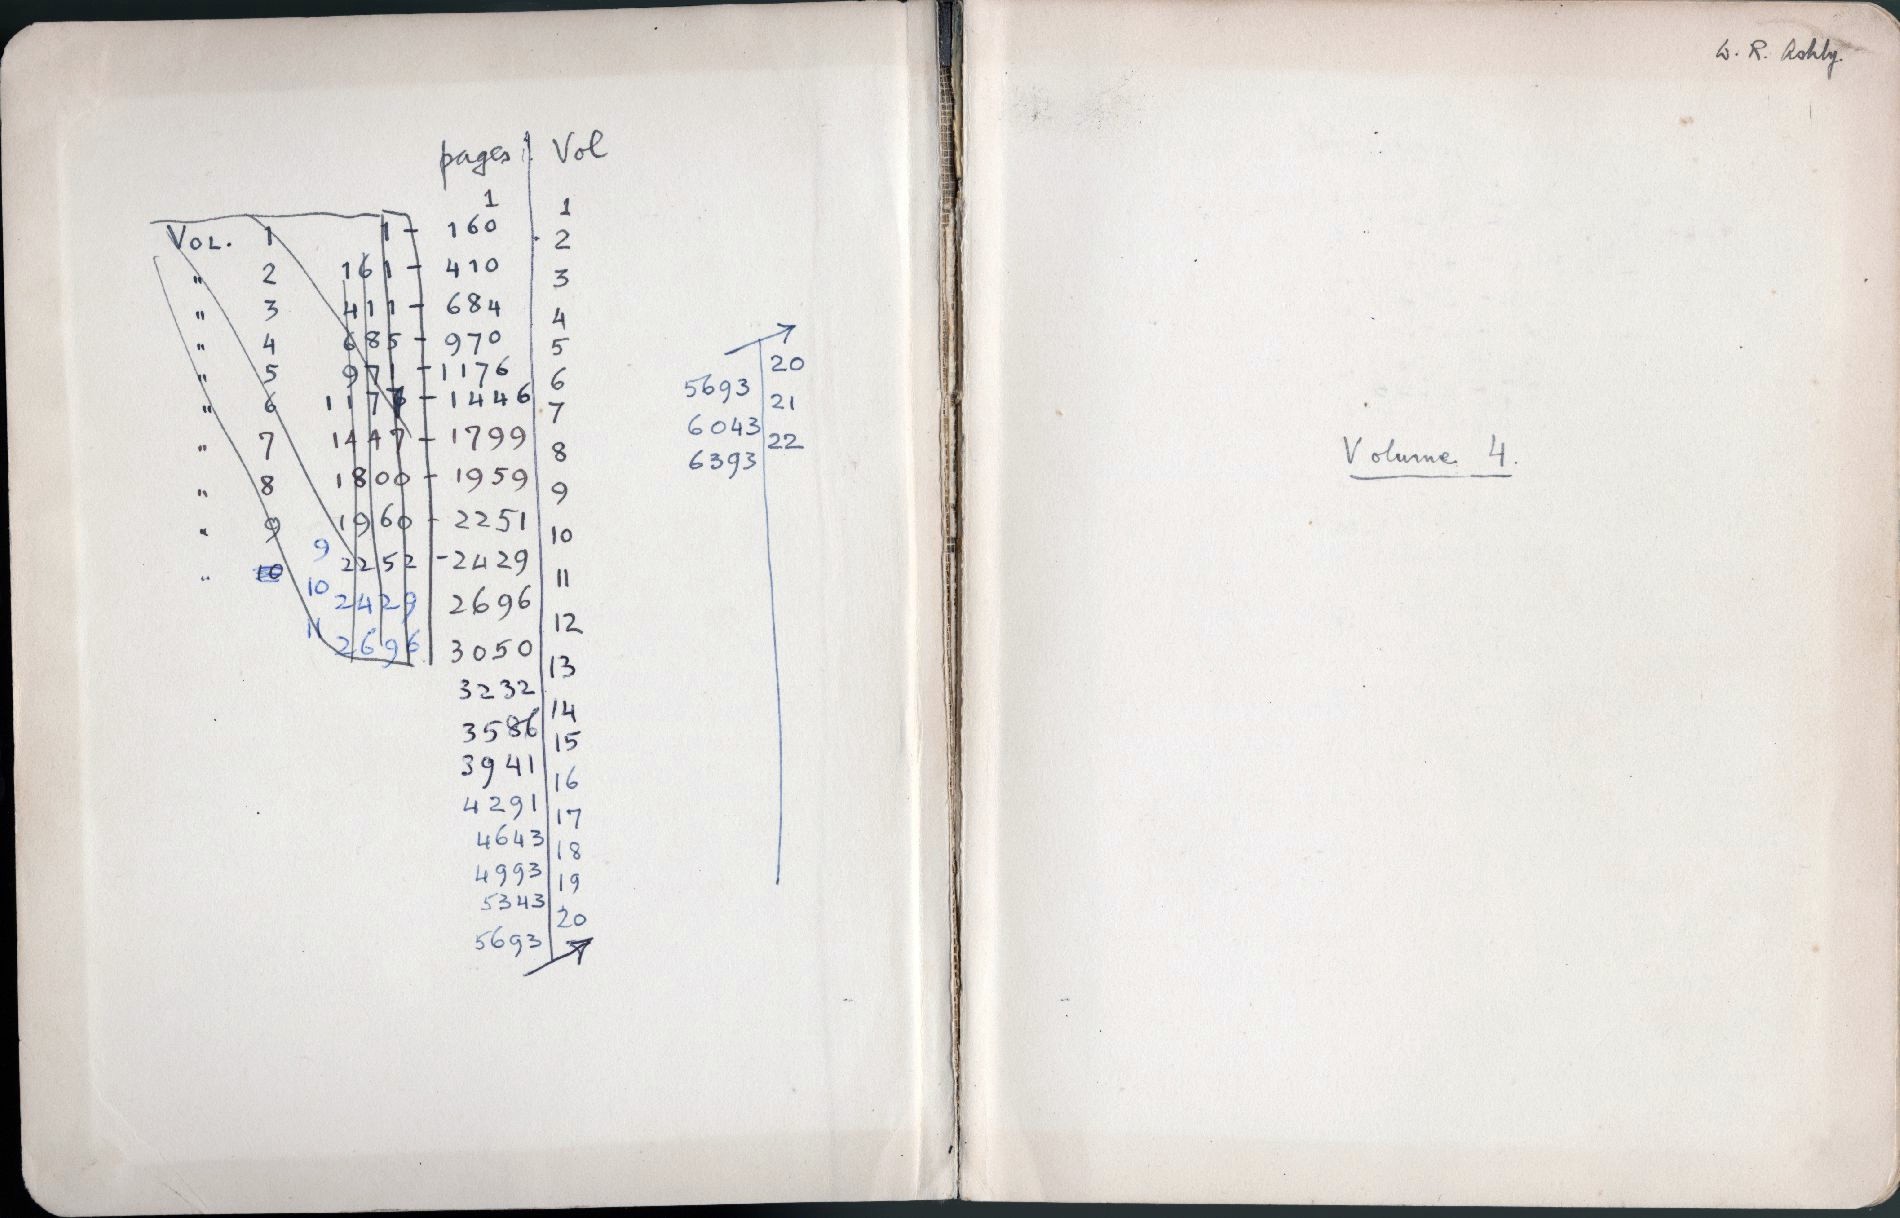 pages Vol
1
1
Vol. 1 1 - 160
2
" 2 161 - 410
3
" 3 411 - 684
4
" 4 685 - 970
5
" 5 971 - 1176
6
" 6 1177 - 1446
7
" 7 1447 - 1799
8
" 8 1800 - 1959
9
" 9 1960 - 2251
10
" 10 9 2252 - 2429
11
10 2429 2696
12
11 2696 3050
13
3232
14
3586
15
3941
16
4291
17
4643
18
4993
19
5343
20
5693
20
5693
21
6043
22
6393
W. R. Ashby.
Volume 4.